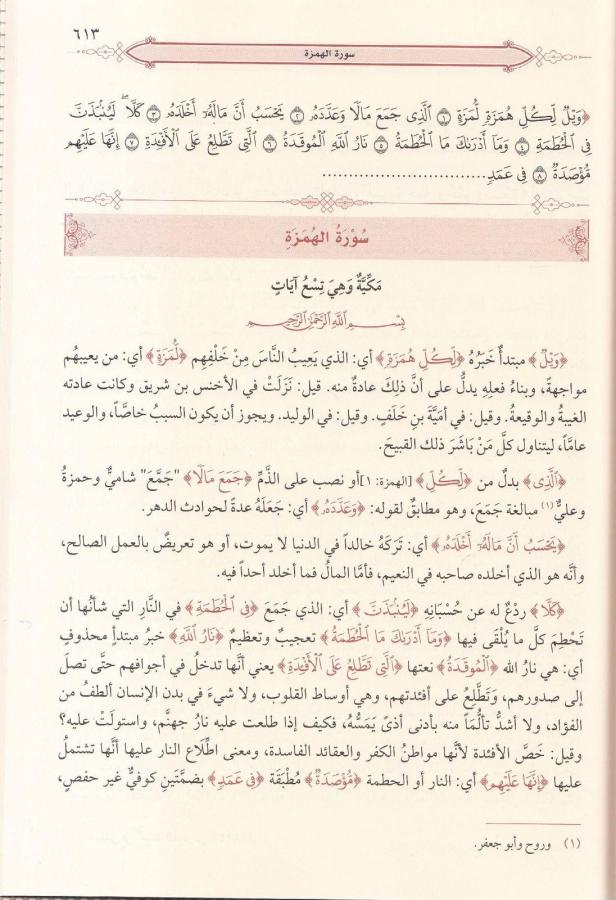 ٦١٣
سورة الهمزة
﴿وَيْلٌ لِّكُلِّ هُمَزَةٍ لُّمَزَةٍ ۝١ ٱلَّذِى جَمَعَ مَالًا وَعَدَّدَهُۥ ۝٢ يَحْسَبُ أَنَّ مَالَهُۥٓ أَخْلَدَهُۥ ۝٣ كَلَّا ۖ لَيُنۢبَذَنَّ
فِى ٱلْحُطَمَةِ ۝٤ وَمَآ أَدْرَىٰكَ مَا ٱلْحُطَمَةُ ۝٥ نَارُ ٱللَّهِ ٱلْمُوقَدَةُ ۝٦ ٱلَّتِى تَطَّلِعُ عَلَى ٱلْأَفْـِٔدَةِ ۝٧ إِنَّهَا عَلَيْهِم
مُّؤْصَدَةٌ ۝٨ فِى عَمَدٍ..............................
سُوْرَةُ الهُمَزَةِ
مَكِّيَّةٌ وَهِيَ تِسْعُ آيَاتٍ
بِسْمِ اللَّهِ الرَّحْمَٰنِ الرَّحِيمِ
﴿وَيْلٌ﴾ مبتدأٌ خَبَرُهُ ﴿لِّكُلِّ هُمَزَةٍ﴾ أي: الذي يَعِيبُ النَّاسَ مِنْ خَلْفِهِم ﴿لُّمَزَةٍ﴾ أي: من يعيبهُم
مواجهةً، وبناءُ فعلِهِ يدلُّ على أنَّ ذلِكَ عادةٌ منه. قيل: نَزَلَتْ في الأخنس بن شريق وكانت عادته
الغيبةُ والوقيعةُ. وقيل: في أمَيَّةَ بنِ خَلَفٍ. وقيل: في الوليد. ويجوز أن يكون السببُ خاصًّا، والوعيد
عامًّا، ليتناول كلَّ مَنْ بَاشَرَ ذلك القبيحَ.
﴿ٱلَّذِى﴾ بدلٌ من ﴿لِّكُلِّ﴾ [الهمزة: ١] أو نصب على الذَّمِّ ﴿جَمَعَ مَالًا﴾ "جَمَّعَ" شاميٌّ وحمزةُ
وعليٌّ(١) مبالغة جَمَعَ، وهو مطابقٌ لقوله: ﴿وَعَدَّدَهُۥ﴾ أي: جَعَلَهُ عدةً لحوادث الدهر.
﴿يَحْسَبُ أَنَّ مَالَهُۥٓ أَخْلَدَهُۥ﴾ أي: تَرَكَهُ خالداً في الدنيا لا يموت، أو هو تعريضٌ بالعمل الصالح،
وأنَّه هو الذي أخلده صاحبه في النعيم، فأمَّا المالُ فما أخلد أحداً فيه.
﴿كَلَّا﴾ ردْعٌ له عن حُسْبَانِهِ ﴿لَيُنۢبَذَنَّ﴾ أي: الذي جَمَعَ ﴿فِى ٱلْحُطَمَةِ﴾ في النَّارِ التي شأنُها أن
تَحْطِمَ كلَّ ما يُلْقَى فيها ﴿وَمَآ أَدْرَىٰكَ مَا ٱلْحُطَمَةُ﴾ تعجيبٌ وتعظيمٌ ﴿نَارُ ٱللَّهِ﴾ خبرُ مبتدأٍ محذوفٍ
أي: هي نارُ الله ﴿ٱلْمُوقَدَةُ﴾ نعتها ﴿ٱلَّتِى تَطَّلِعُ عَلَى ٱلْأَفْـِٔدَةِ﴾ يعني أنَّها تدخلُ في أجوافهم حتَّى تصلَ
إلى صدورهم، وَتَطَّلِعُ على أفئدتهم، وهي أوساط القلوب، ولا شيءَ في بدن الإنسان ألطفُ من
الفؤاد، ولا أشدُّ تألُّمَاً منه بأدنى أذىً يَمَسُّهُ، فكيف إذا طلعت عليه نارُ جهنَّم، واستولَتْ عليه؟
وقيل: خَصَّ الأفئدةَ لأنَّها مواطنُ الكفر والعقائد الفاسدة، ومعنى اطِّلاَع النار عليها أنَّها تشتملُ
عليها ﴿إِنَّهَا عَلَيْهِم﴾ أي: النار أو الحطمة ﴿مُّؤْصَدَةٌ﴾ مُطْبَقَة ﴿فِى عَمَدٍ﴾ بضمَّتَينِ كوفيٌّ غير حفصٍ،
(١) وروح وأبو جعفر.